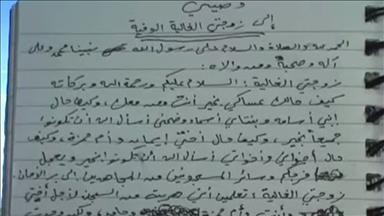 وصيتي
إلى زوجتي الغالية الوفية
الحمد لله والصلاة والسلام على رسول الله نبينا محمد وعلى
آله وصحبه ومن والاه :
زوجتي الغالية : السلام عليكم ورحمة الله وبركاته
كيف حالك عساكي بخير أنت ومن معك ، وكيف حال
إبني أسامه وبنتاي أسماء وضحى أسأل الله أن تكونوا
جميعاً بخير ، وكيف حال أختي إيمان وأم حمزة ، وكيف
حال أخواني وأخواتي أسأل الله أن تكونوا بخير ويعجل
فرجكم وسائر المسجونين من المجاهدين إلى بر الأمان
زوجتي الغالية : تعلمين أنني هربت من السجن لأجل